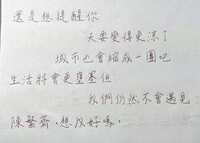 還是想提醒你
天要變得更涼了
城市也會縮成一團吧
生活料會更壅塞但
我們仍然不會遇見
陳繁齊，想做好嗎，